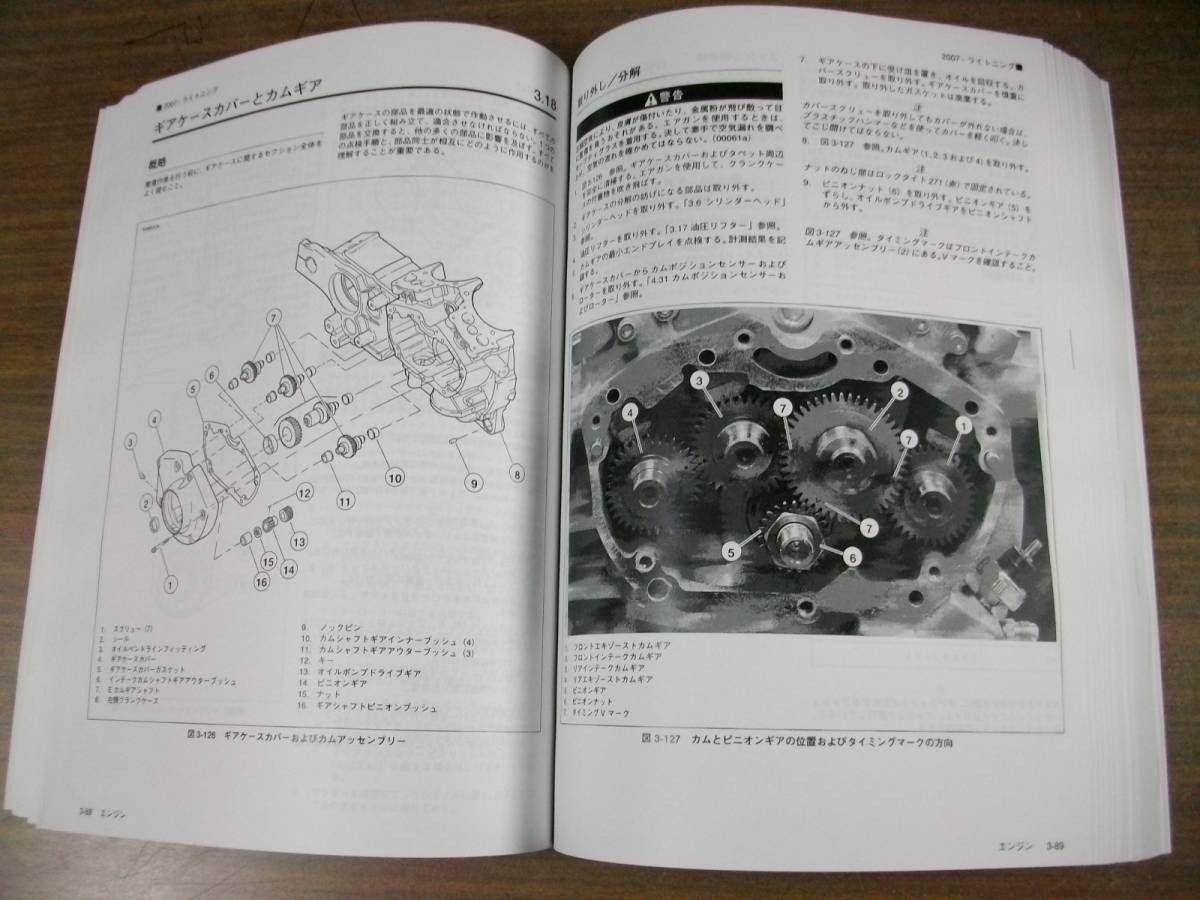 ■ 2007・ライトニング
ギアケースカバーとカムギア
3.18
概略
整備作業を行う前に、ギアケースに関するセクション全体を
よく読むこと。
ギアケースの部品を最適の状態で作動させるには、すべての
部品を正しく組み立て、適合させなければならない。1つの
部品を交換すると、他の多くの部品に影響を及ぼす。すべて
の点検手順と、部品同士が相互にどのように作用するのかを
理解することが重要である。
7
6
5
4
3
2
1
8
9
10
11
12
13
14
15
16
1. スクリュー (7)
2. シール
3. オイルベントラインフィッティング
4. ギアケースカバー
5. ギアケースカバーガスケット
6. インテークカムシャフトギアアウターブッシュ
7. E カムギアシャフト
8. 右側クランクケース
9. ノックピン
10. カムシャフトギアインナーブッシュ (4)
11. カムシャフトギアアウターブッシュ (3)
12. キー
13. オイルポンプドライブギア
14. ピニオンギア
15. ナット
16. ギアシャフトピニオンブッシュ
図 3-126 ギアケースカバーおよびカムアッセンブリー
3-88 エンジン
2007・ライトニング ■
取り外し/分解
警告
金属粉が飛び散って目
エアガンを使用するときは、
決して素手で空気漏れを調べ
(00061a)
図 3-126 参照。ギアケースカバーおよびタペット周辺
を完全に清掃する。エアガンを使用して、クランクケー
の付着物を吹き飛ばす。
ギアケースの分解の妨げになる部品は取り外す。
シリンダーヘッドを取り外す。「3.6 シリンダーヘッド」
参照。
油圧リフターを取り外す。「3.17 油圧リフター」参照。
カムギアの最小エンドプレイを点検する。計測結果を記
録する。
ギアケースカバーからカムポジションセンサーおよび
ローターを取り外す。「4.31 カムポジションセンサーお
よびローター」参照。
7. ギアケースの下に受け皿を置き、オイルを回収する。カ
バースクリューを取り外す。ギアケースカバーを慎重に
取り外す。取り外したガスケットは廃棄する。
注
カバースクリューを取り外してもカバーが外れない場合は、
プラスチックハンマーなどを使ってカバーを軽く叩く。決し
てこじ開けてはならない。
8. 図 3-127 参照。カムギア (1, 2, 3 および 4) を取り外す。
注
ナットのねじ部はロックタイト 271 (赤) で固定されている。
9. ピニオンナット (6) を取り外す。ピニオンギア (5) を
ずらし、オイルポンプドライブギアをピニオンシャフト
から外す。
注
図 3-127 参照。タイミングマークはフロントインテークカ
ムギアアッセンブリー (2) にある。V マークを確認すること。
3
7
2
4
7
1
7
5
6
1. フロントエキゾーストカムギア
2. フロントインテークカムギア
3. リアインテークカムギア
4. リアエキゾーストカムギア
5. ピニオンギア
6. ピニオンナット
7. タイミング V マーク
図 3-127 カムとピニオンギアの位置およびタイミングマークの方向
エンジン 3-89